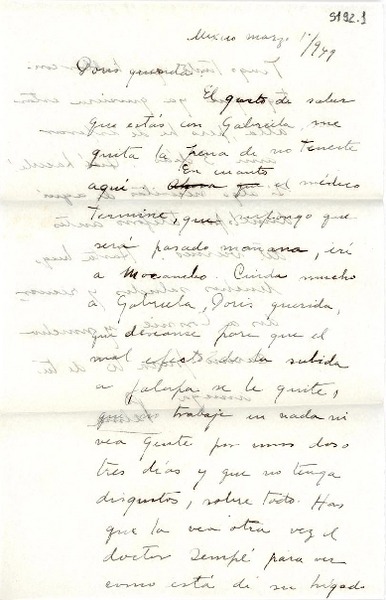 5192.1
Mexico marzo 1º/949
Doris querida
El gusto de saber
que estás con Gabriela, me
quita la pena de no tenerte
aquí En cuanto el médico
termine, que supongo que
será pasado mañana, iré
a Mocambo. Cuida mucho
a Gabriela, Doris querida,
que descanse para que el
mal efecto de la subida
a Jalapa se le quite,
que trabaje en nada ni
vea gente por unos dos o
tres días y que no tenga
disgustos, sobre todo. Has
que la vea otra vez el
doctor Semplé para ver
como está di su hígado